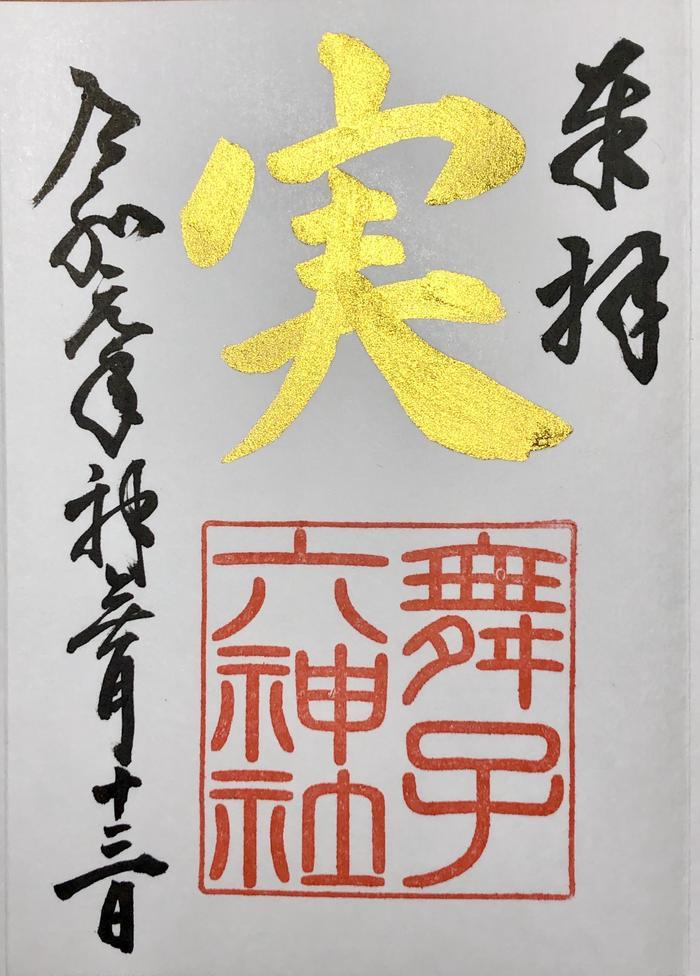 奉拝
実
舞子
六神社
令和元年神無月十三日